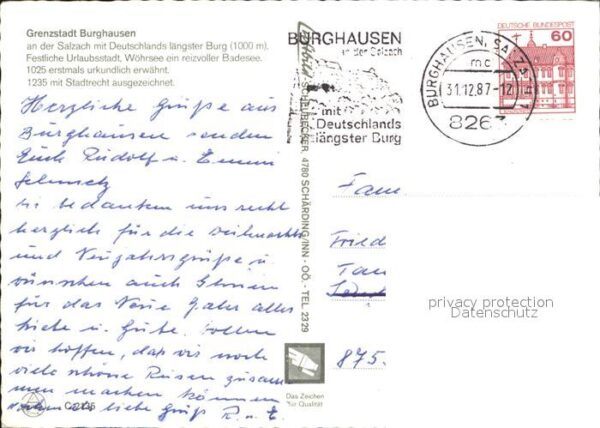 Grenzstadt Burghausen
an der Salzach mit Deutschlands längster Burg (1000 m).
Festliche Urlaubsstadt, Wöhrsee ein reizvoller Badesee.
1025 erstmals urkundlich erwähnt.
1235 mit Stadtrecht ausgezeichnet.
Herzliche Grüße aus
Burghausen senden
Euch Rudolf u. Emmi
Schmelz
bedanken uns recht
herzlich für die Weihnachts
und Neujahrsgrüße u
wünschen auch Ihnen
für das Neue Jahr alles
Liebe u. Gute. Wollen
wir hoffen, daß wir noch
viele schöne Reisen zusam
men machen können
liebe Grüße R. u. E.
C 2235
SCHEURECKER 4780 SCHÄRDING/INN - OÖ. - TEL 2329
BURGHAUSEN
an der Salzach
mit
Deutschlands
längster Burg
BURGHAUSEN, SALZACH 1
mc
31.12.87-12
8263
DEUTSCHE BUNDESPOST
60
Fam
Fried
Tau
875
Das Zeichen
für Qualität
privacy protection
Datenschutz